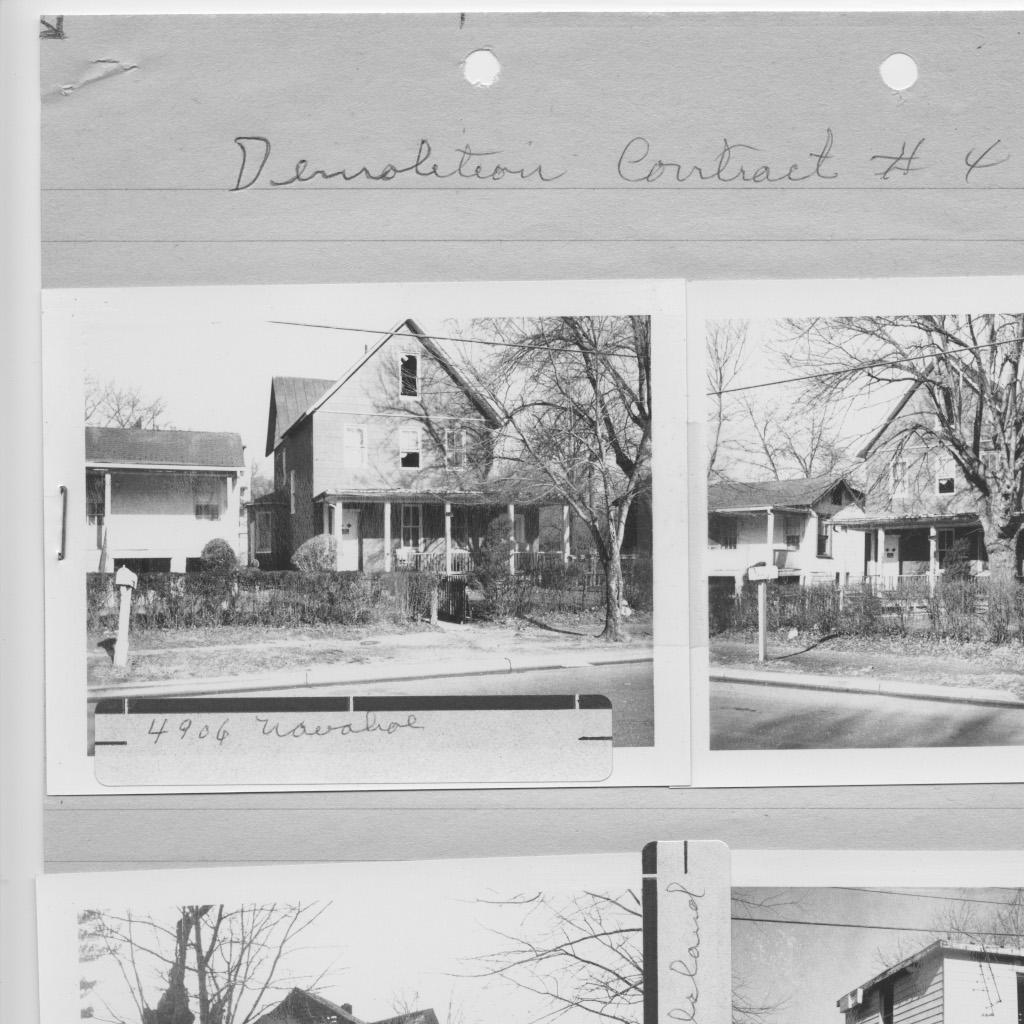 Demolition Contract # 4
4906 Navahoe